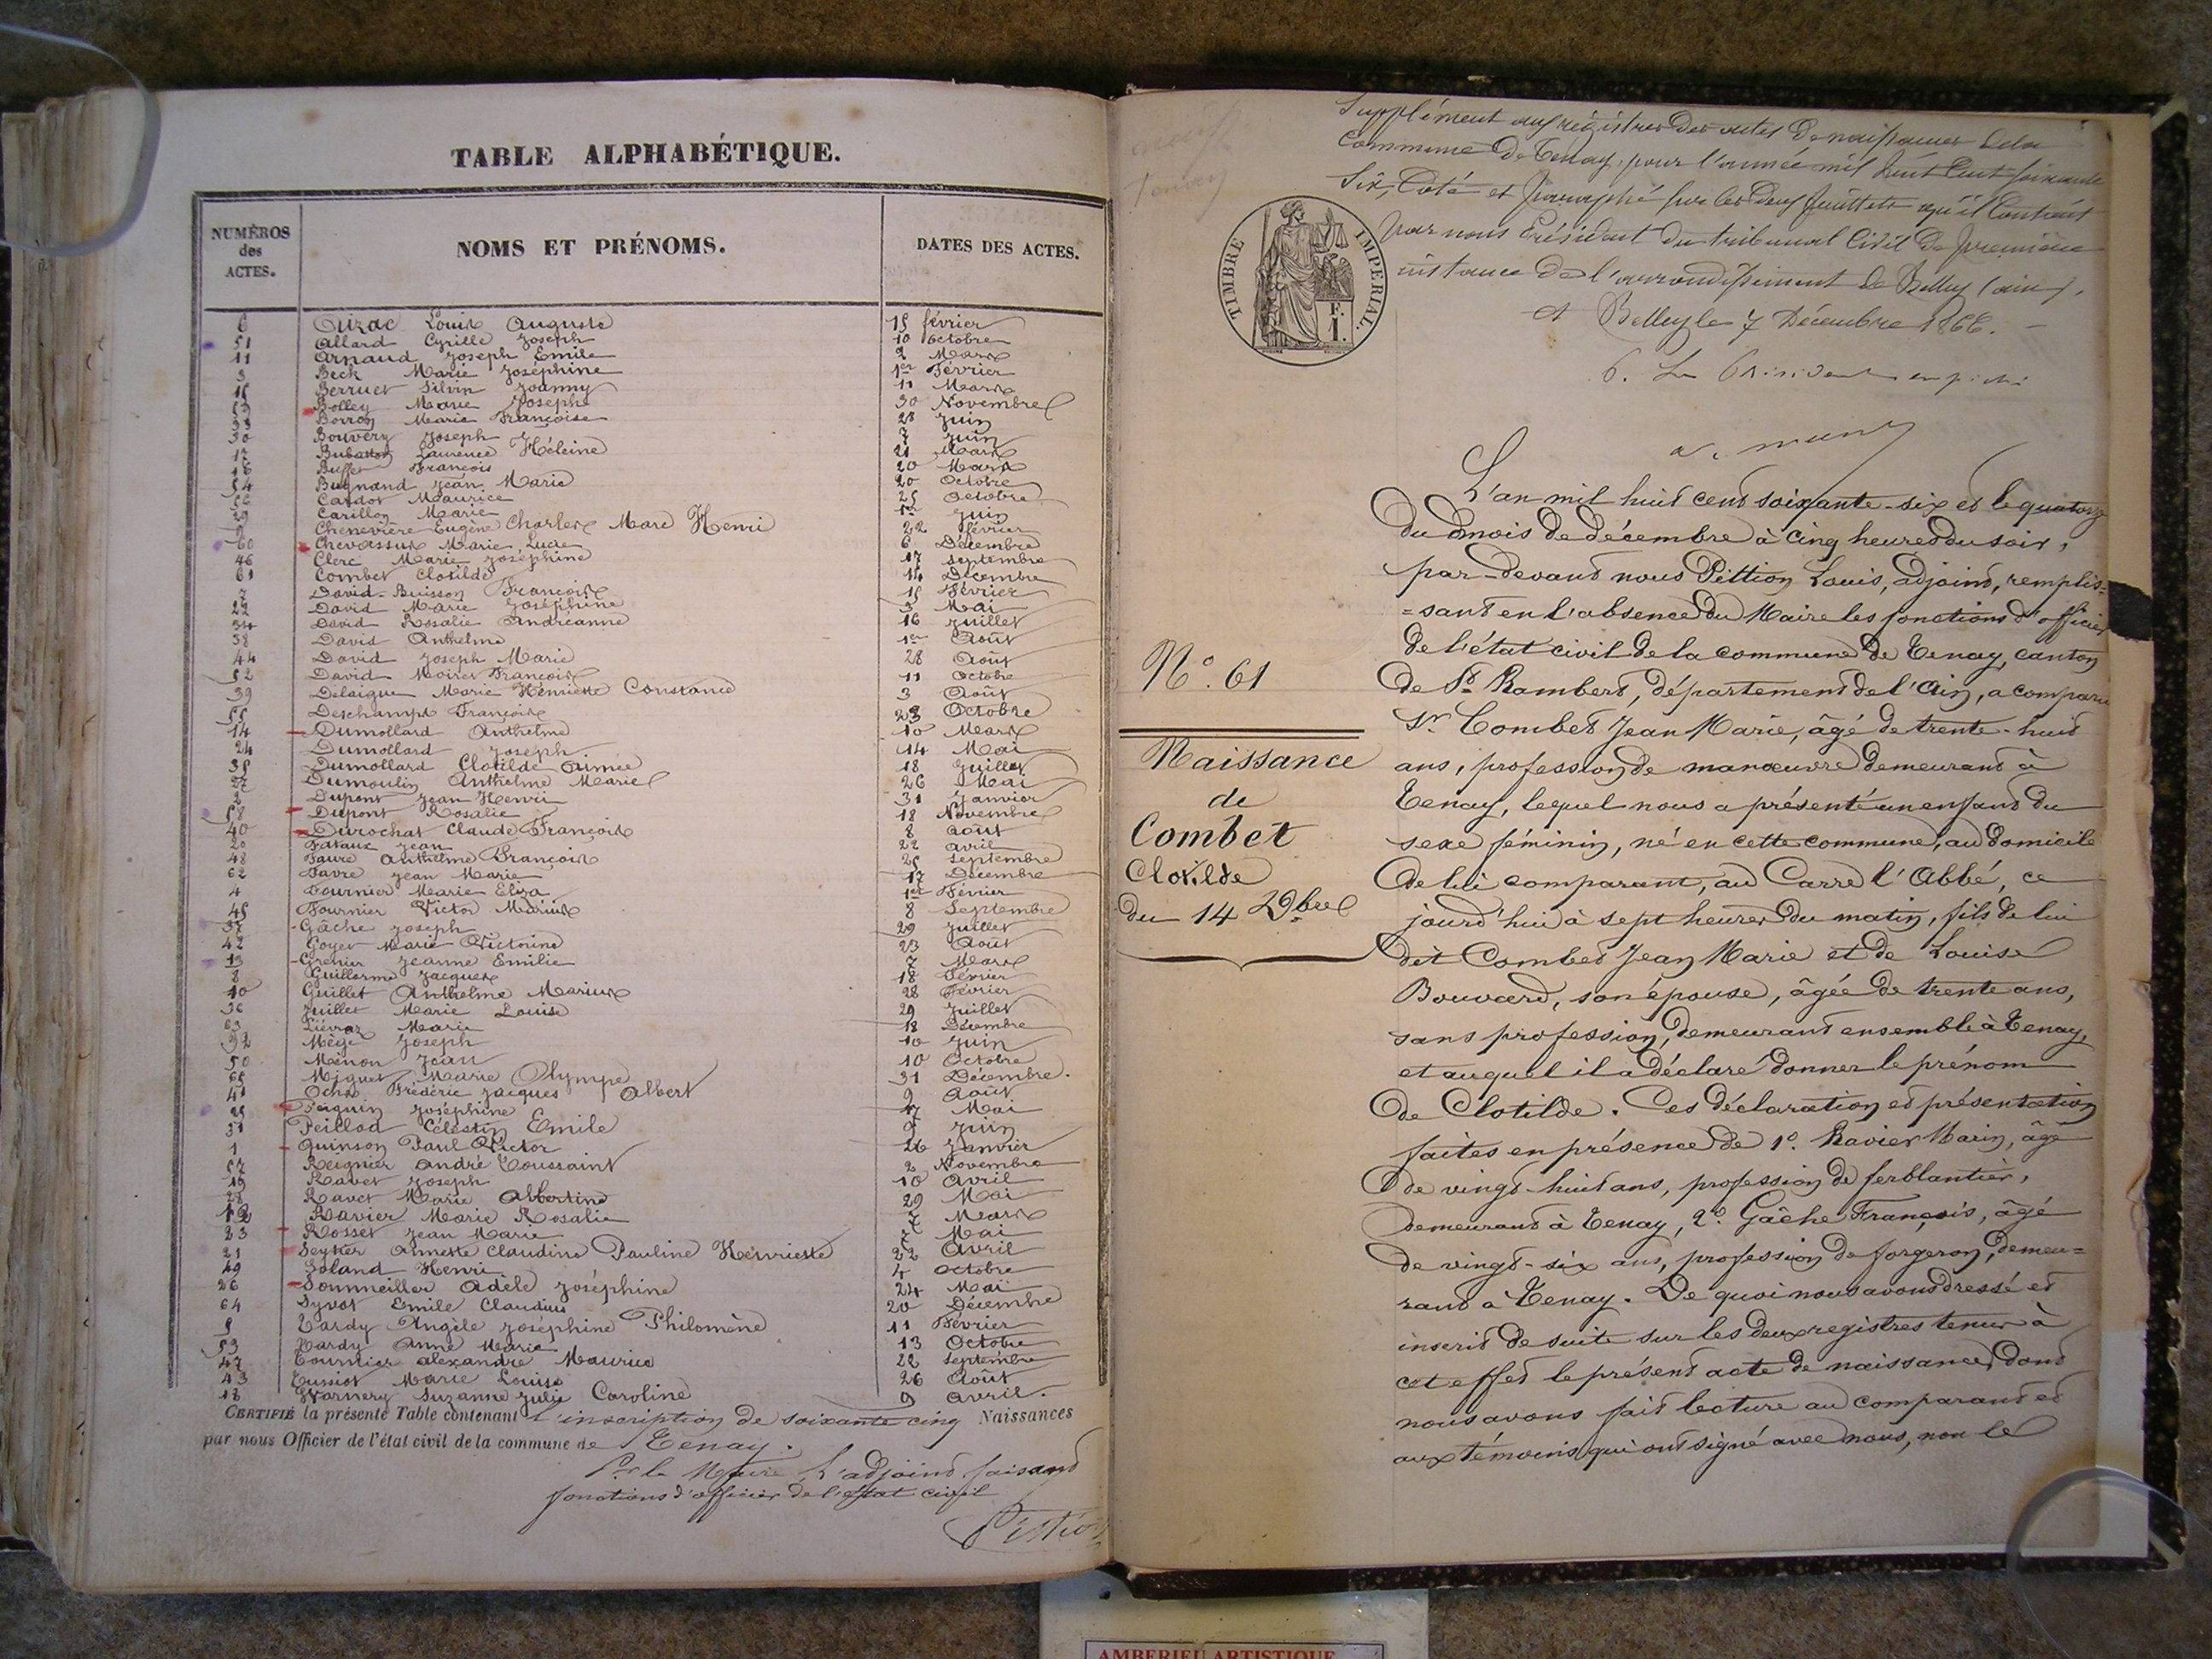 TABLE ALPHABÉTIQUE.
NUMÉROS des ACTES.
NOMS ET PRÉNOMS.
DATES DES ACTES.
6 Louis Auguste 15 février
51 Allard Cyrille Joseph 10 octobre
11 Arnaud Joseph Emile 2 Mars
3 Beck Marie Joséphine 1er Février
15 Berruet Silvin Joanny 11 Mars
Bolley Marie Josephe 30 Novembre
33 Marie Françoise 28 Juin
30 Bouvery Joseph 7 Juin
17 Laurence Héleine 21 Mars
16 Buffet François 20 Mars
54 Bugnand Jean Marie 20 Octobre
56 Cardot Maurice 25 Octobre
29 Carillon Marie 1er Juin
Chenevière Eugène Charles Marc Henri 22 février
60 Chevassus Marie Lucie 6 Décembre
46 Clerc Marie Joséphine 17 Septembre
61 Combet Clotilde 14 Décembre
7 David-Buisson François 15 Février
22 David Marie Joséphine 3 Mai
34 David Rosalie Andréanne 16 Juillet
38 David Anthelme 1er Août
44 David Joseph Marie 28 Août
52 David Moiret François 11 Octobre
39 Delaigue Marie Henriette Constance 3 Août
55 Deschamps François 23 Octobre
14 Dumollard Anthelme 10 Mars
24 Dumollard Joseph 14 Mai
35 Dumollard Clotilde Aimée 18 Juillet
27 Dumoulin Anthelme Marie 26 Mai
2 Dupont Jean Henri 31 Janvier
58 Dupont Rosalie 18 Novembre
40 Durochat Claude François 8 Août
20 Jean 22 avril
48 Favre Anthelme François 25 Septembre
62 Favre Jean Marie 17 Décembre
4 Fournier Marie Eliza 1er Février
45 Fournier Victor Marius 8 Septembre
37 Gâche Joseph 29 Juillet
42 Goyet Marie Victorine 23 Août
13 Grenier Jeanne Emilie 7 Mars
8 Guillerme Jacques 18 Février
10 Guillet Anthelme Marius 28 Février
36 Juillet Marie Louise 29 Juillet
63 Liévraz Marie 18 Décembre
32 Mège Joseph 10 Juin
50 Menon Jean 10 Octobre
65 Miguet Marie Olympe 31 Décembre.
41 Ochs Frédéric Jacques Albert 9 Août
25 Peiguin Joséphine 17 Mai
31 Peillod Célestin Emile 9 Juin
1 Quinson Paul Victor 26 Janvier
57 Reignier André Toussaint 2 Novembre
19 Ravet Joseph 10 Avril
28 Ravet Marie Albertine 29 Mai
12 Ravier Marie Rosalie 7 Mars
23 Rosset Jean Marie 7 Mai
21 Annette Claudine Pauline Henriette 22 Avril
49 Soland Henri 4 Octobre
26 Sonmeiller Adèle Joséphine 24 Mai
64 Syvot Emile Claudius 20 Décembre
5 Tardy Angèle Joséphine Philomène 11 Février
53 Tardy Anne Marie 13 Octobre
47 Tournier Alexandre Maurice 22 Septembre
43 Tussiot Marie Louise 26 Août
18 Warnery Suzanne Julie Caroline 9 avril.
CERTIFIÉ la présente Table contenant l'inscription de soixante cinq Naissances
par nous Officier de l'état civil de la commune de Tenay.
Pr le Maire L'adjoint faisant
fonctions d'officier de l'état civil
Pittion
Supplément aux registres des actes de naissances de la
Commune de Tenay, pour l'année mil huit Cent soixante
Six, Coté et Paraphé sur les deux feuillets qu'il Contient
par nous Président du tribunal Civil de première
instance de l'arrondissement de Belley (ain).
A Belley le 7 Décembre 1866.
TIMBRE IMPÉRIAL.
1 F.
L'an mil huit cent soixante-six et le quatorze
du mois de décembre à cinq heures du soir,
par-devant nous Pittion Louis, adjoint, remplis-
=sant en l'absence du Maire les fonctions d'officier
de l'état civil de la commune de Tenay, canton
de St Rambert, département de l'Ain, a comparu
Sr Combet Jean Marie, âgé de trente-huit
ans, profession de manœuvre demeurant à
Tenay, lequel nous a présenté un enfant du
sexe féminin, né en cette commune, au domicile
de lui comparant, au Carre l'Abbé, ce
jourd'hui à sept heures du matin, fils de lui
dit Combet Jean Marie et de Louise
Bouvard, son épouse, âgée de trente ans,
sans profession, demeurant ensemble à Tenay,
et auquel il a déclaré donner le prénom
de Clotilde. Ces déclaration et présentation
faites en présence de 1º. Ravier Marin, âgé
de vingt-huit ans, profession de ferblantier,
demeurant à Tenay, 2º. Gâche François, âgé
de vingt-six ans, profession de forgeron, demeu=
rant à Tenay. De quoi nous avons dressé et
inscrit de suite sur les deux registres tenus à
cet effet le présent acte de naissance, dont
nous avons fait lecture au comparant et
aux témoins qui ont signé avec nous, non le
Nº. 61
Naissance
de
Combet
Clotilde
du 14 Xbre
AMBERIEU ARTISTIQUE